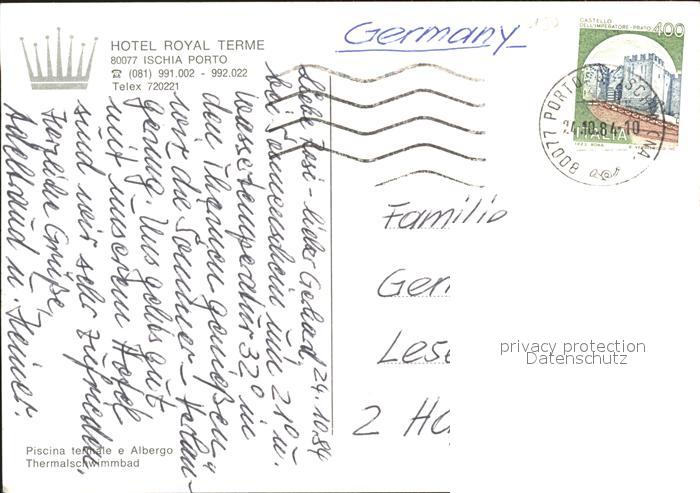 HOTEL ROYAL TERME
80077 ISCHIA PORTO
☎ (081) 991.002 - 992.022
Telex 720221
Germany
CASTELLO
DELL'IMPERATORE-PRATO
400
ITALIA
80077 PORTO D'ISCHIA (NA)
24.10.84-10
24.10.84
Liebe Resi - lieber Gerhard,
bei Sonnenschein um 21° u.
Wassertemperatur 32° in
den Thermen genießen
wir die Sommer-
genug. Uns geht's gut
mit unserem Hotel
sind wir sehr zufrieden.
Herzliche Grüße,
Adeltraud u. Heiner.
Familie
Ger
Lese
2 Ha
privacy protection
Datenschutz
Piscina termale e Albergo
Thermalschwimmbad